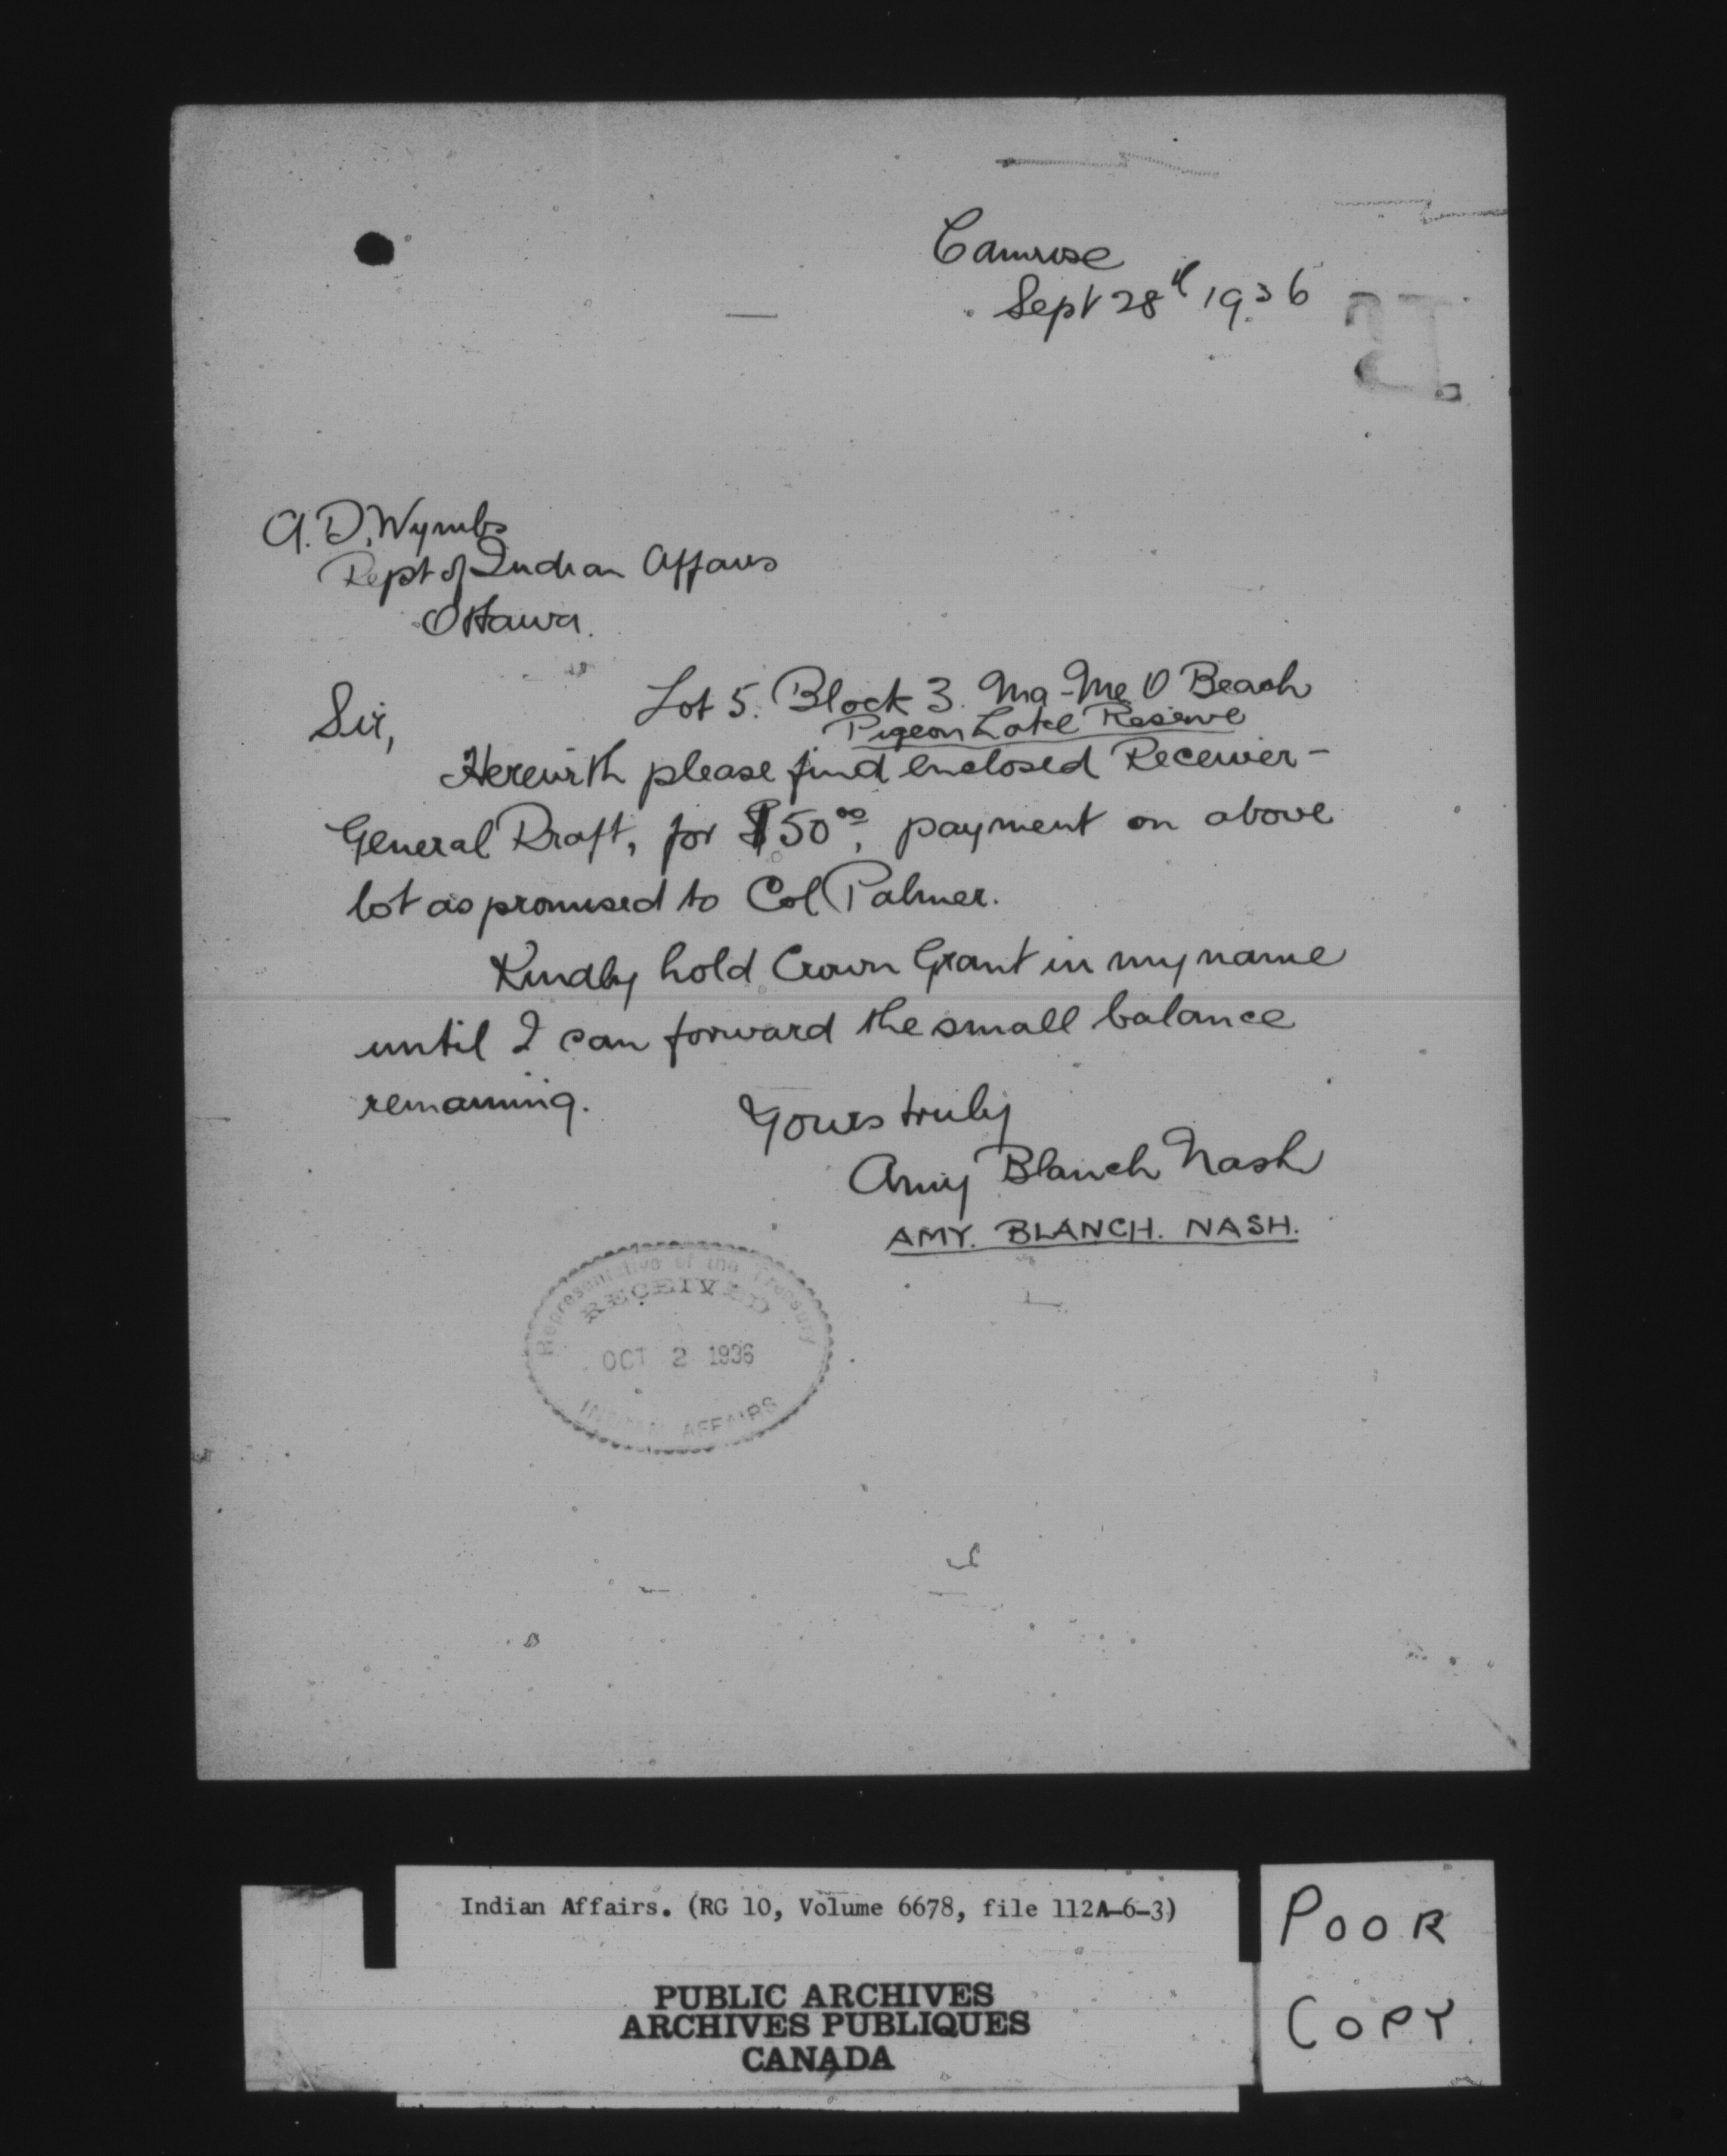 Camrose
Sept 28th 1936
A. D. Wymbs
Dept of Indian Affairs
Ottawa.
Lot 5. Block 3. Ma-Me O Beach
Pigeon Lake Reserve
Sir,
Herewith please find enclosed Receiver-
General Draft, for $50.00, payment on above
lot as promised to Col Palmer.
Kindly hold Crown Grant in my name
until I can forward the small balance
remaining.
Yours truly
Amy Blanch Nash
AMY. BLANCH. NASH.
Representative of the Treasury
RECEIVED
OCT 2 1936
INDIAN AFFAIRS
Indian Affairs. (RG 10, Volume 6678, file 112A-6-3)
PUBLIC ARCHIVES
ARCHIVES PUBLIQUES
CANADA
POOR
COPY